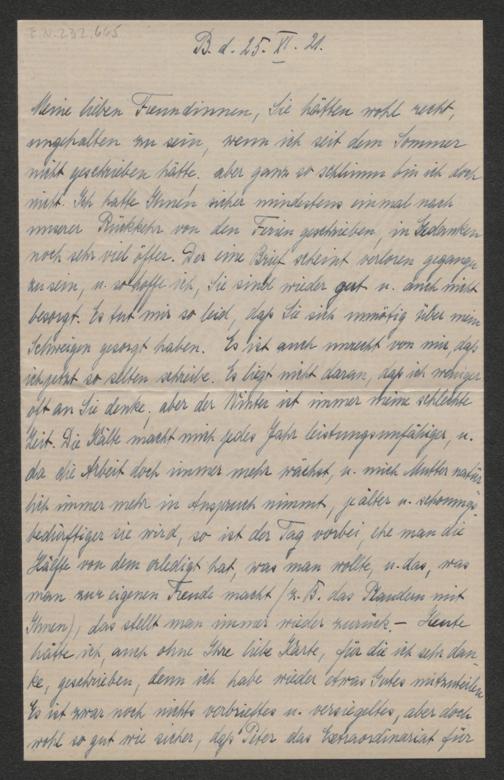 E.N. 232.665
B. d. 25. XI. 21.
Meine lieben Freundinnen, Sie hätten wohl recht,
ungehalten zu sein, wenn ich seit dem Sommer
nicht geschrieben hätte. aber ganz so schlimm bin ich doch
nicht. Ich hatte Ihnen sicher mindestens einmal nach
unserer Rückkehr von den Ferien geschrieben, in Gedanken
noch sehr viel öfter. Der eine Brief scheint verloren gegangen
zu sein, u. so hoffe ich, Sie sind wieder gut u. auch nicht
besorgt. Es tut mir so leid, daß Sie sich unnötig über mein
Schweigen gesorgt haben. Es ist auch unrecht von mir, daß
ich jetzt so selten schreibe. Es liegt nicht daran, daß ich weniger
oft an Sie denke, aber der Winter ist immer meine schlechte
Zeit. Die Kälte macht mich jedes Jahr leistungsunfähiger, u.
da die Arbeit doch immer mehr wächst, u. mich Mutter natür
lich immer mehr in Anspruch nimmt, je älter u. schonungs
bedürftiger sie wird, so ist der Tag vorbei, ehe man die
Hälfte von dem erledigt hat, was man wollte, u. das, was
man zur eigenen Freude macht (z. B. das Plaudern mit
Ihnen), das stellt man immer wieder zurück – Heute
hätte ich, auch ohne Ihre liebe Karte, für die ich sehr dan-
ke, geschrieben, denn ich habe wieder etwas Gutes mitzuteilen
Es ist zwar noch nichts verbrieftes u. versiegeltes, aber doch
wohl so gut wie sicher, daß Peter das Extraordinariat für